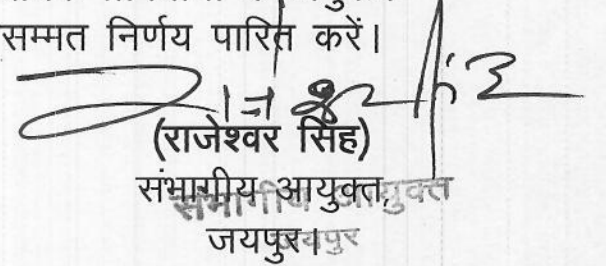 सम्मत निर्णय पारित करें।
(राजेश्वर सिंह)
संभागीय आयुक्त,
संभागीय आयुक्त
जयपुर।
जयपुर